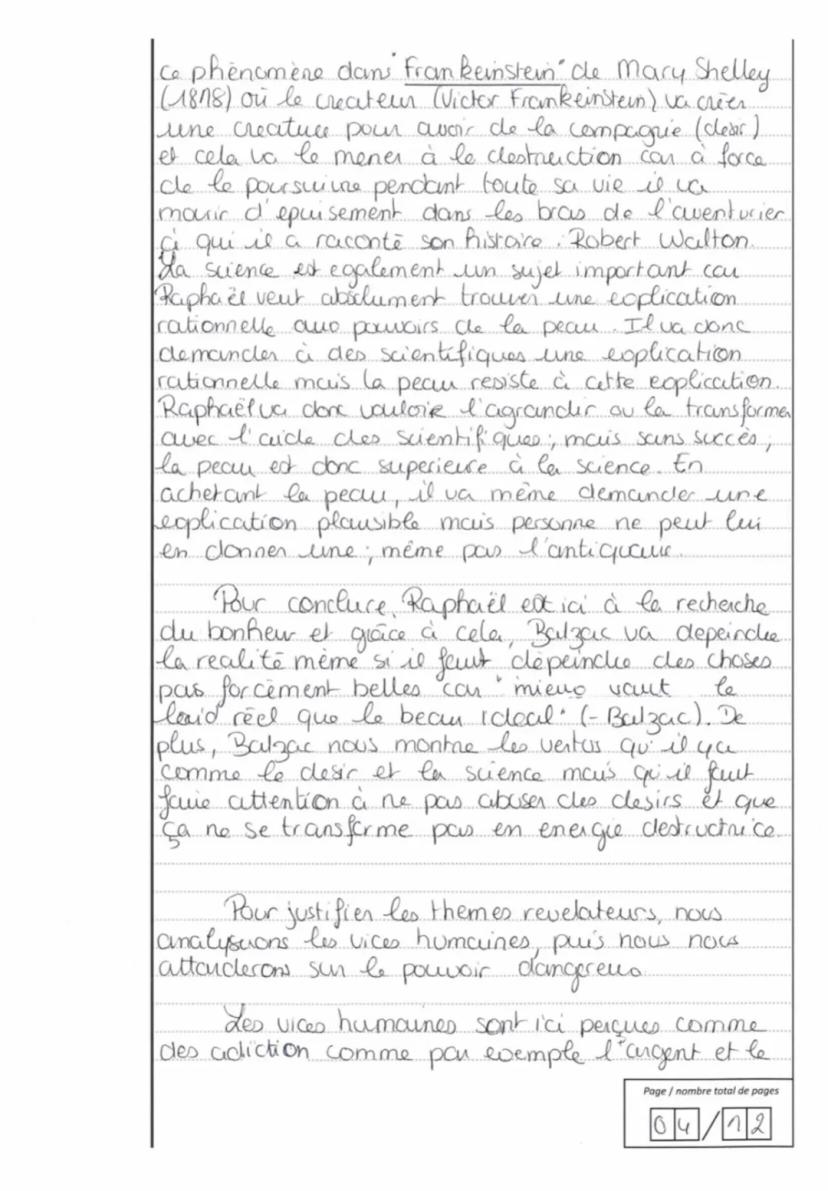 ce phénomène dans "Frankeinstein" de Mary Shelley
(1818) où le createur (Victor Frankeinstein) va créer
une creature pour avoir de la compagnie (desir)
et cela va le mener à la destruction car à force
de le poursuivre pendant toute sa vie il va
mourir d'epuisement dans les bras de l'aventurier
à qui il a raconté son histoire : Robert Walton.
La science est egalement un sujet important car
Raphaël veut absolument trouver une explication
rationnelle aux pouvoirs de la peau. Il va donc
demander à des scientifiques une explication
rationnelle mais la peau resiste à cette explication.
Raphaël va donc vouloir l'agrandir ou la transformer
avec l'aide des scientifiques ; mais sans succès ;
la peau est donc superieure à la science. En
achetant la peau, il va même demander une
explication plausible mais personne ne peut lui
en donner une ; même pas l'antiquaire.
Pour conclure, Raphaël est ici à la recherche
du bonheur et grâce à cela, Balzac va depeindre
la realité même si il faut dépeindre des choses
pas forcément belles car "mieux vaut le
laid réel que le beau ideal" (- Balzac). De
plus, Balzac nous montre les vertus qu'il y a
comme le desir et la science mais qu'il faut
faire attention à ne pas abuser des desirs et que
ça ne se transforme pas en energie destructrice.
Pour justifier les themes revelateurs, nous
analyserons les vices humaines, puis nous nous
attarderons sur le pouvoir dangereux.
Les vices humaines sont ici perçues comme
des adiction comme par exemple l'argent et le
Page / nombre total de pages
04/12